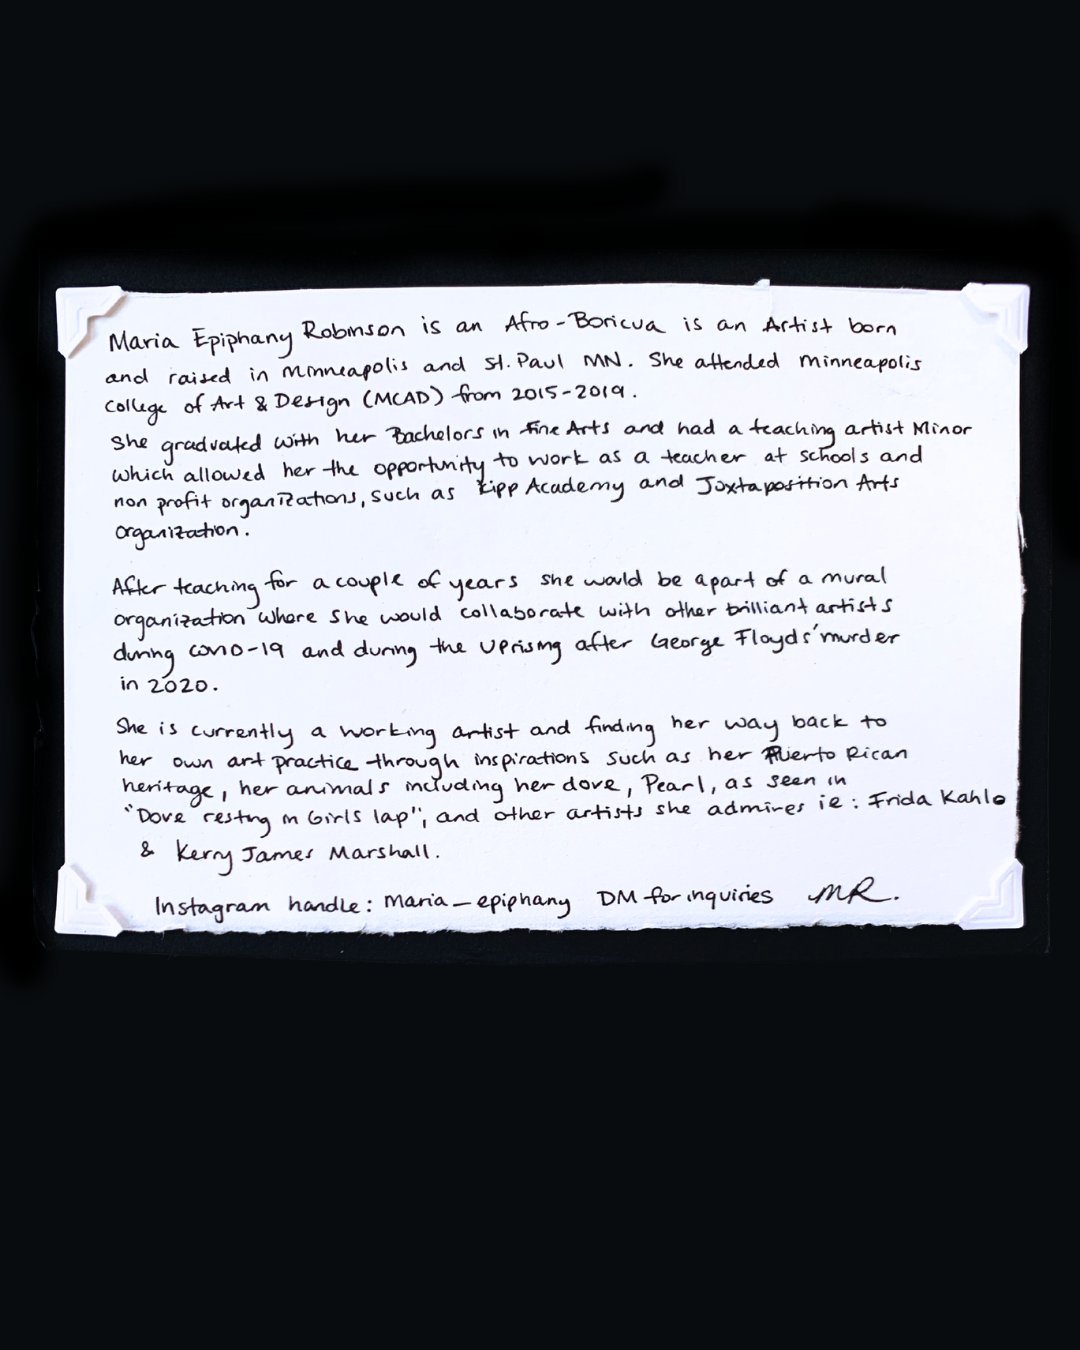 Maria Epiphany Robinson is an Afro-Boricua is an Artist born
and raised in Minneapolis and St. Paul MN. She attended Minneapolis
College of Art & Design (MCAD) from 2015-2019.
She graduated with her Bachelors in Fine Arts and had a teaching artist Minor
which allowed her the opportunity to work as a teacher at schools and
non profit organizations, such as Kipp Academy and Juxtaposition Arts
organization.
After teaching for a couple of years she would be apart of a mural
organization where she would collaborate with other brilliant artists
during COVID-19 and during the uprising after George Floyds' murder
in 2020.
She is currently a working artist and finding her way back to
her own art practice through inspirations such as her Puerto Rican
heritage, her animals including her dove, Pearl, as seen in
"Dove resting in Girls lap", and other artists she admires ie: Frida Kahlo
& Kerry James Marshall.
Instagram handle: Maria_epiphany DM for inquiries MR.